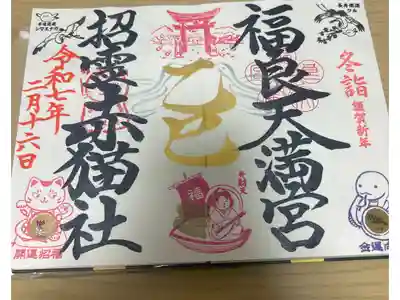 長寿開運
ツル
冬詣
謹賀新年
福良天満宮
乙巳
福
招霊赤猫社
令和七年
二月十六日
開運招福